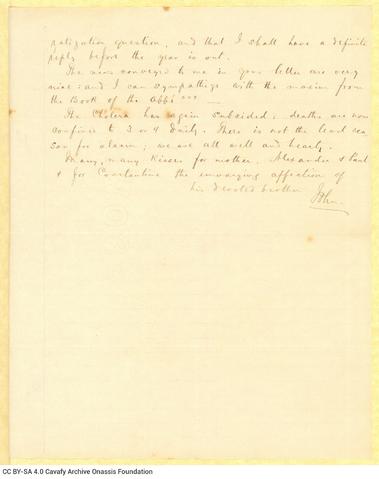 ralization question, and that I shall have a definite
reply before the year is out.
The news conveyed to me in your letter are very
nice: and I can sympathize with the maxim from
the Book of the Abbé
The Cholera has again subsided; deaths are now
confined to 3 or 4 daily. There is not the least rea
son for alarm; we are all well and hearty.
Many, many kisses for mother, Alexander & Paul
& for Constantine the unvarying affection of
his devoted brother
John.
CC BY-SA 4.0 Cavafy Archive Onassis Foundation